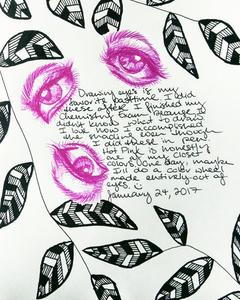 Drawing eyes is my
favorite pasttime. I did
these after I finished my
Chemistry Exam because I
didn't know what to draw.
I love how I accomplished
the shading even though
I did these in pen
Hot Pink is honestly
one of my closet
colors. One day, maybe
I'll do a color wheel
made entirely out of
eyes. :)
January 24, 2017